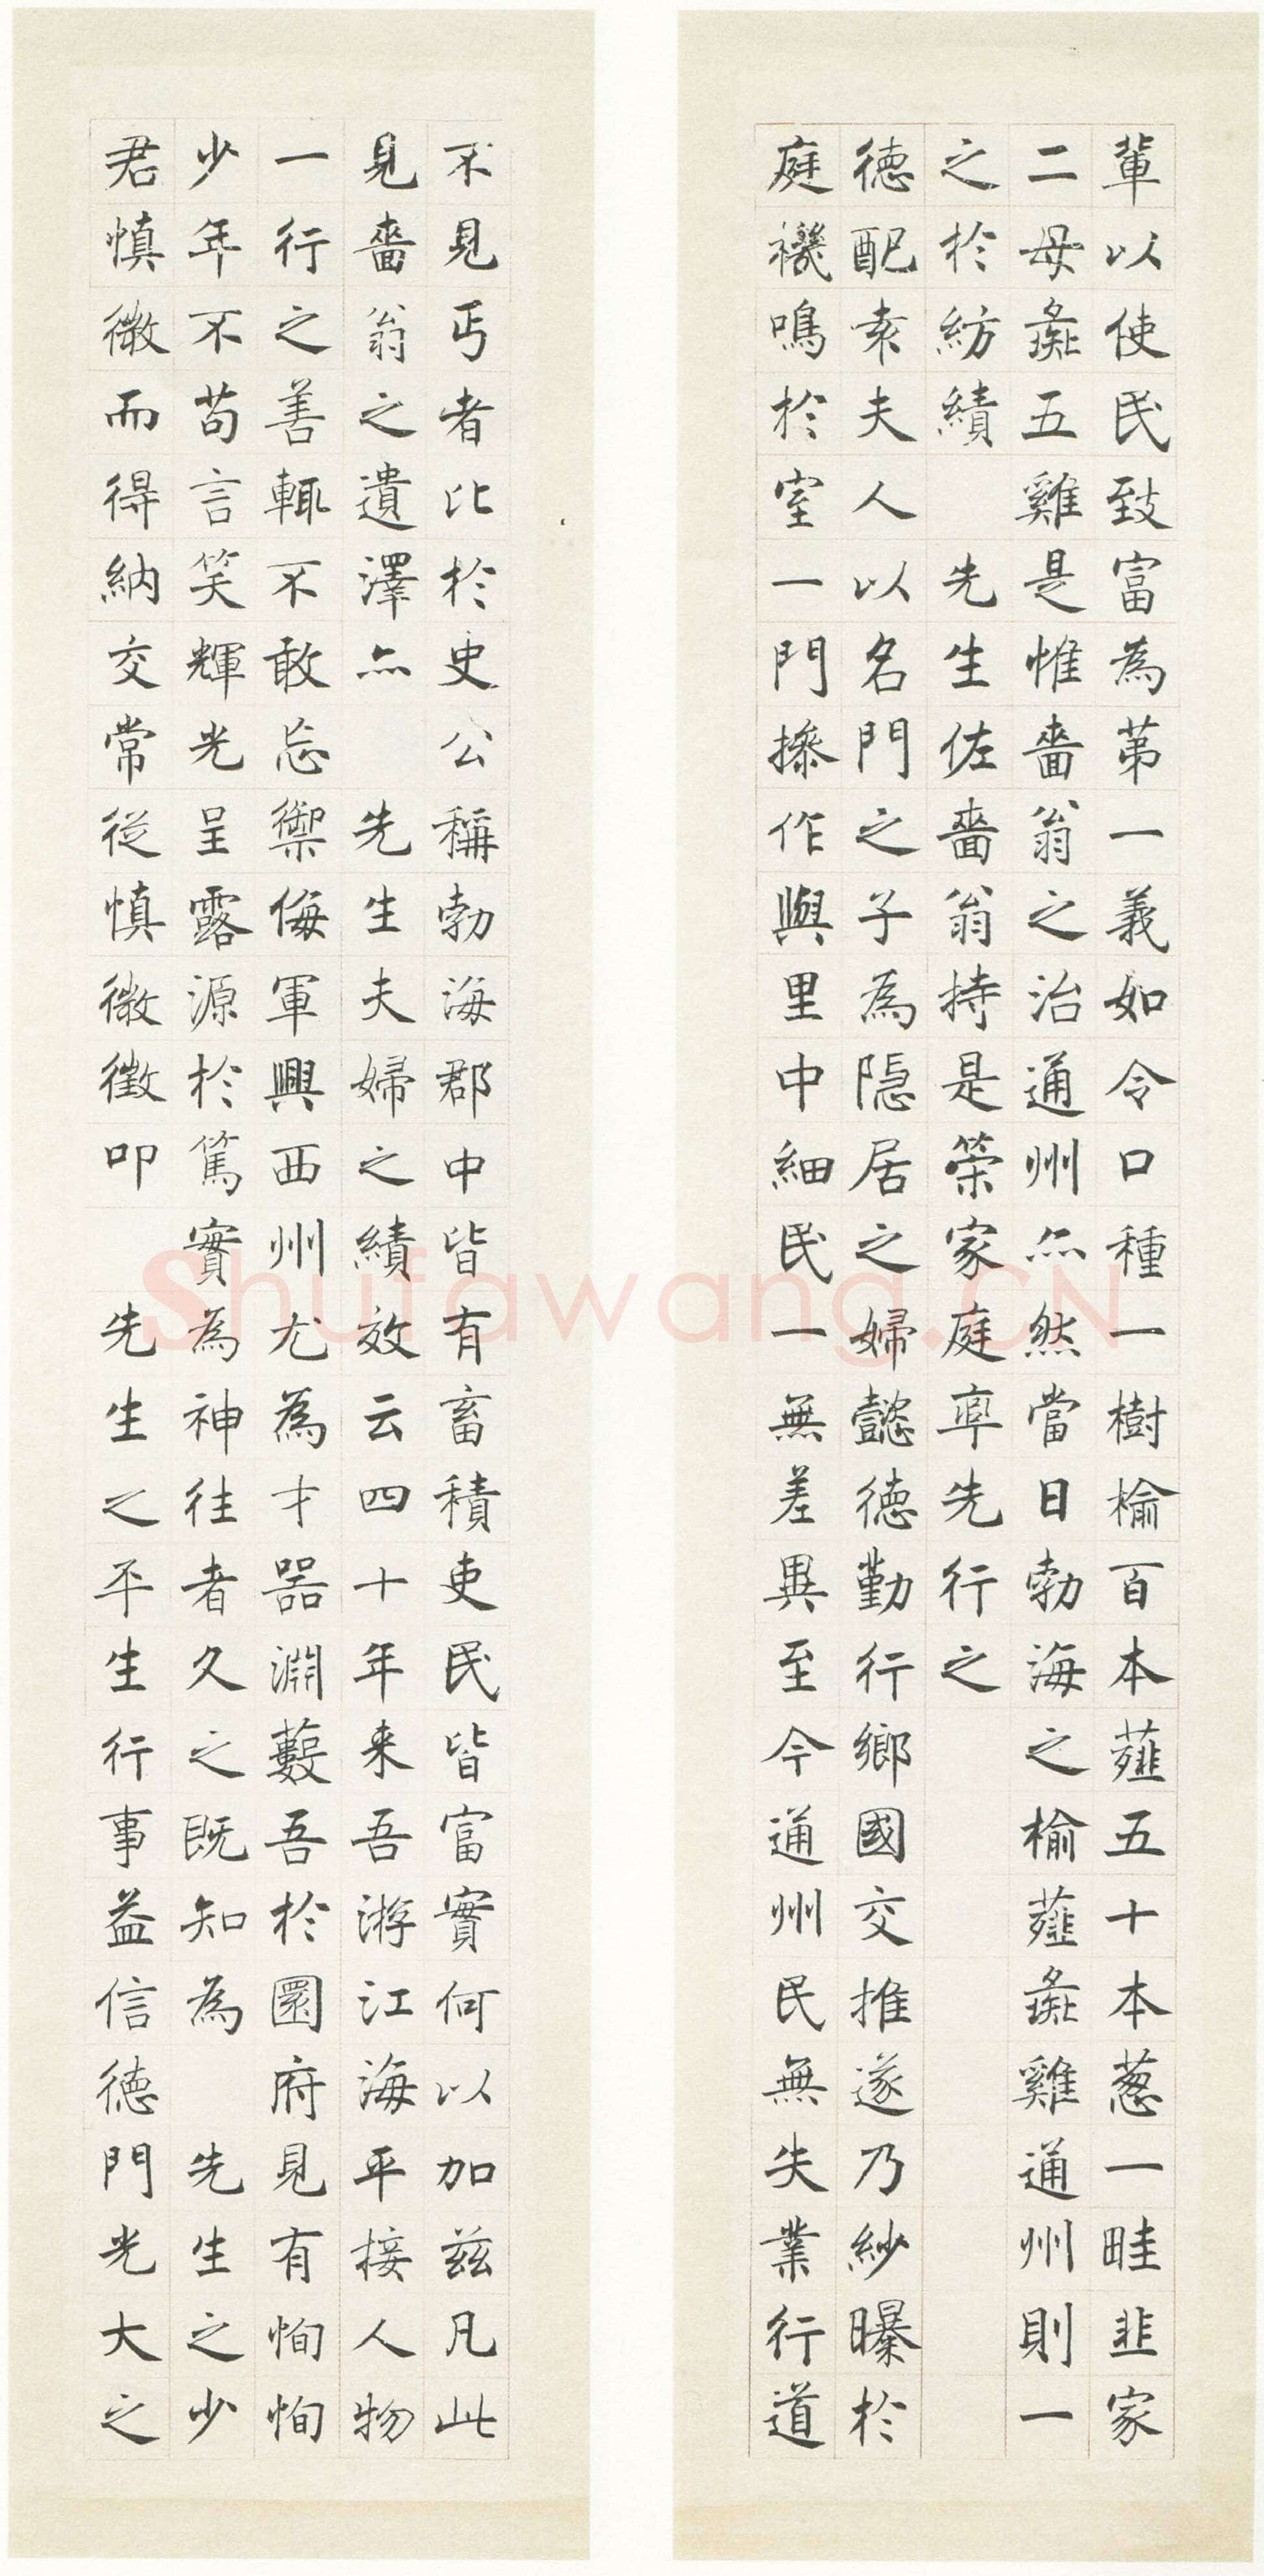 輩以使民致富為苐一義如令口種一樹榆百本薤五十本葱一畦韭家
二母彘五雞是惟嗇翁之治通州亦然當日勃海之榆薤彘雞通州則一
之於紡績 先生佐嗇翁持是榮家庭率先行之
德配索夫人以名門之子為隱居之婦懿德勤行鄉國交推遂乃紗曝於
庭機鳴於室一門操作與里中細民一無差異至今通州民無失業行道
不見丐者比於史公稱勃海郡中皆有畜積吏民皆富實何以加茲凡此
見嗇翁之遺澤亦 先生夫婦之績效云四十年来吾游江海平接人物
一行之善輒不敢忘禦侮軍興西州尤為才器淵藪吾於園府見有恂恂
少年不苟言笑輝光呈露源於篤實為神往者久之既知為 先生之少
君慎微而得納交常從慎微徵叩 先生之平生行事益信德門光大之
shufawang.CN